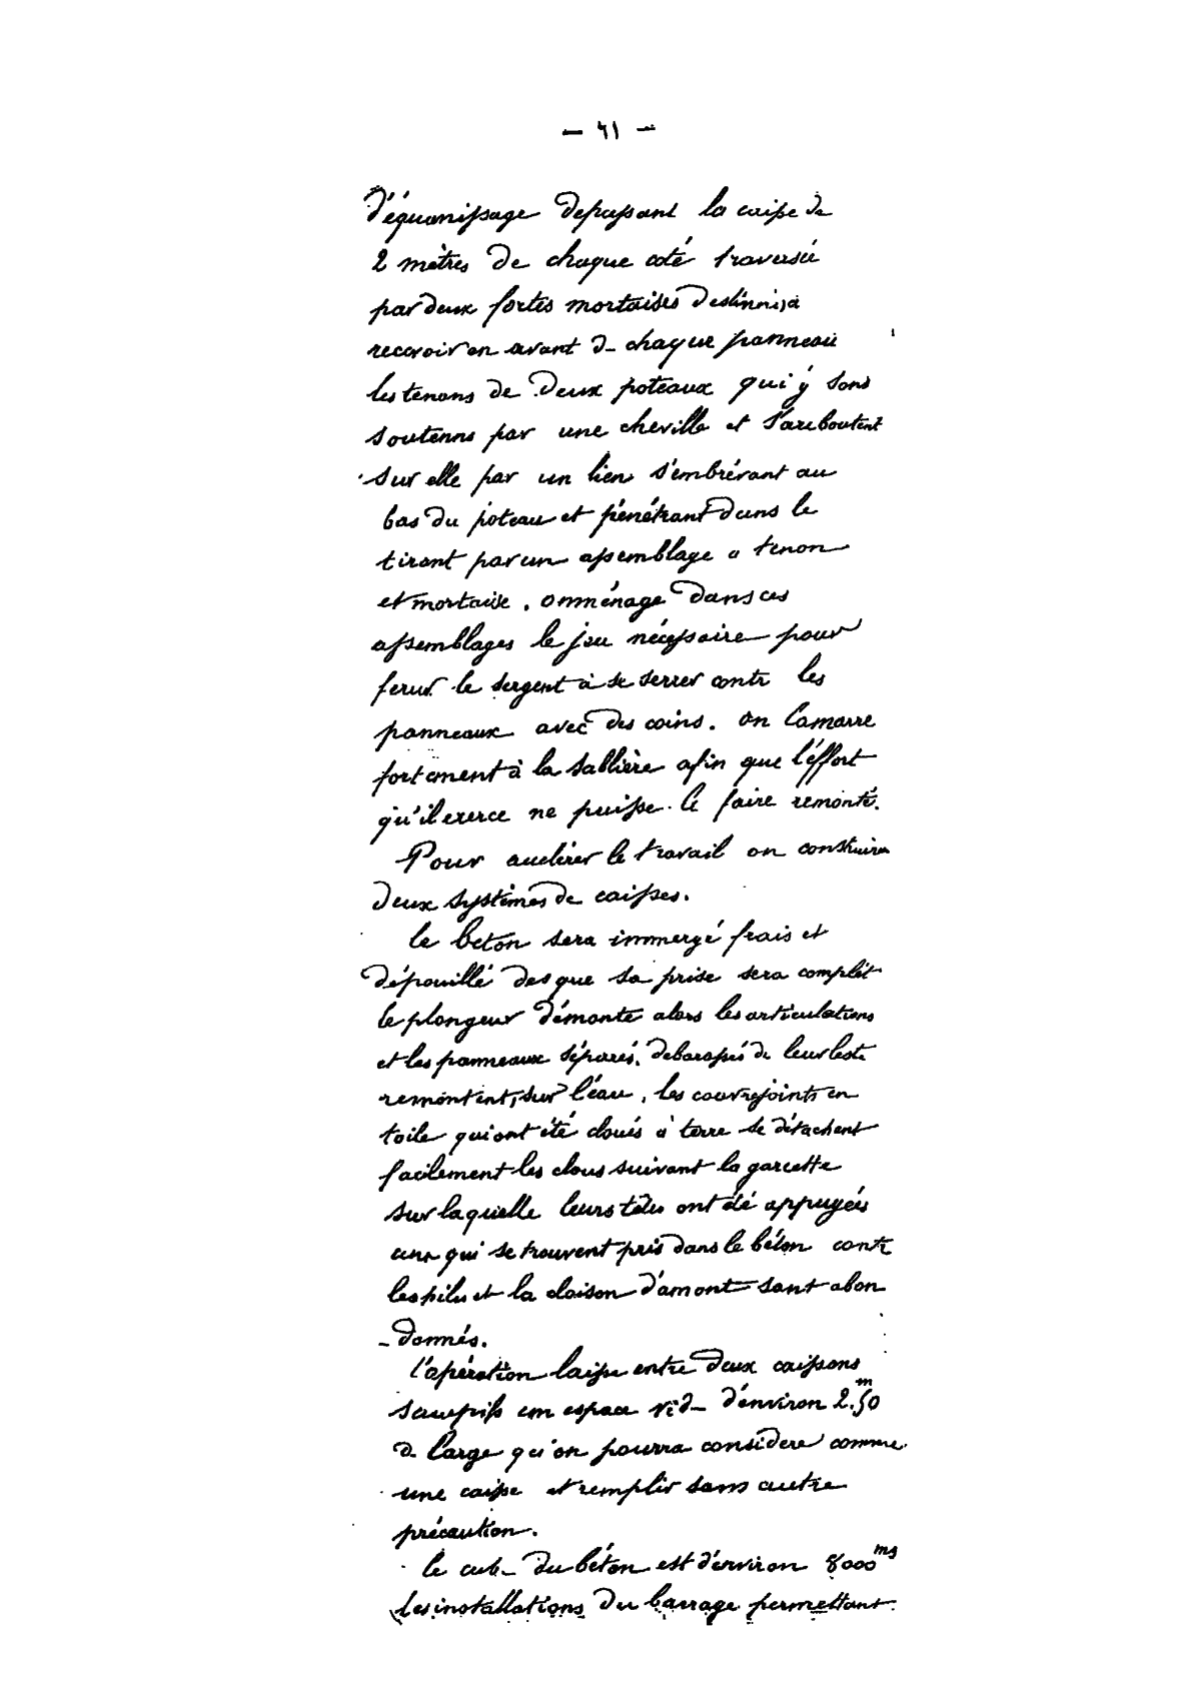 — 41 —
d'équarrissage depassant la caisse de
2 mètres de chaque coté traversée
par deux fortes mortaises destinnées à
recevoir en avant de chaque panneau
les tenons de deux poteaux qui y sont
soutenus par une cheville et s'arcboutent
sur elle par un lien s'embrévant au
bas du poteau et pénétrant dans le
tirant par un assemblage a tenon
et mortaise. on ménage dans ces
assemblages le jeu nécessaire pour
le sergent à se serrer contre les
panneaux avec des coins. on l'amarre
fortement à la sablière afin que l'éffort
qu'il exerce ne puisse le faire remonté.
Pour accélérer le travail on construira
deux systèmes de caisses.
le beton sera immergé frais et
dépouillé des que sa prise sera complèt
le plongeur démonte alors les articulations
et les panneaux séparés, debarassés de leur leste
remontent, sur l'éau, les couvrejoints en
toile qui ont été cloués à terre se détachent
facilement les clous suivant la garcette
sur laquelle leurs têtes ont été appuyées
ceux qui se trouvent pris dans le béton contre
les piles et la cloison d'amont sont aban
-donnés.
l'opération laisse entre deux caissons
un espace vide d'énviron 2.50 m
de large qu'on pourra considere comme
une caisse et remplir sans autre
précaution.
le cube du béton est d'énviron 8000 m3
les installations du barrage permettant